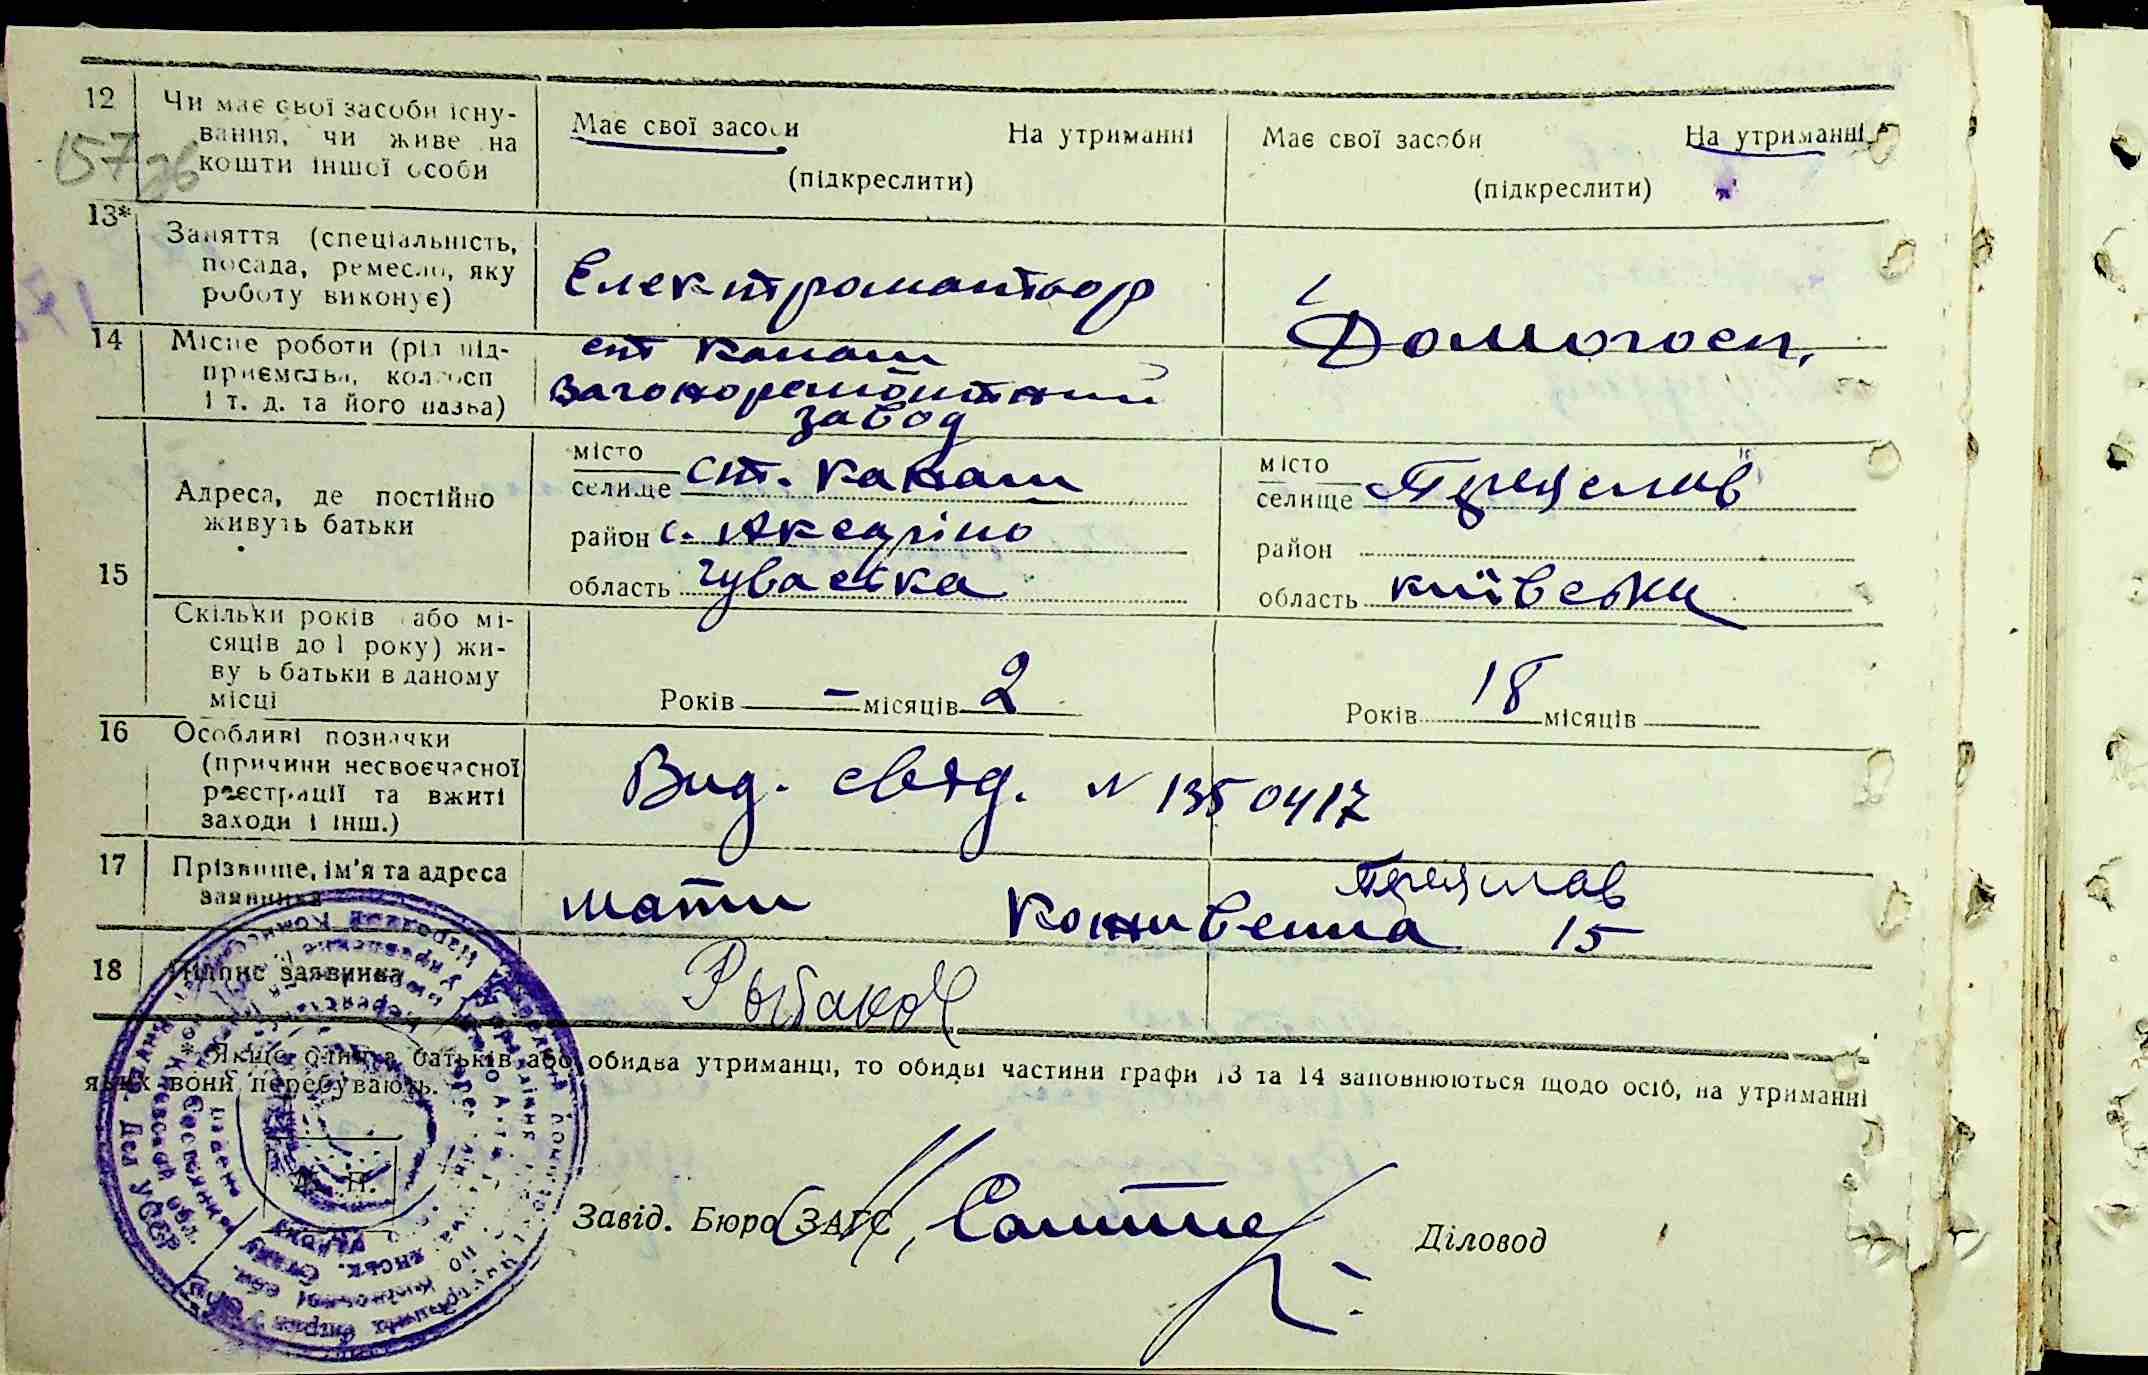 12
Чи має свої засоби існу-
вання, чи живе на
кошти іншої особи
Має свої засоби
На утриманні
(підкреслити)
Має свої засоби
На утриманні
(підкреслити)
157
13*
Заняття (спеціальність,
посада, ремесло, яку
роботу виконує)
Електромантьор
Домогосп.
14
Місце роботи (рід під-
приємства, колгосп
і т. д. та його назва)
ст Канаш
Вагоноремонтний
завод
15
Адреса, де постійно
живуть батьки
місто
селище ст. Канаш
район с. Яксаріно
область Чуваська
місто
селище Переяслав
район
область Київська
Скільки років або мі-
сяців до 1 року) жи-
ву ь батьки в даному
місці
Років – місяців 2
Років 18 місяців
16
Особливі позначки
(причини несвоєчасної
реєстрації та вжиті
заходи і інш.)
Вид. свід. N 1350417
17
Прізвище, ім'я та адреса
заявника
мати
Переяслав
15
18
Підпис заявника
Рыбакова
* Якщо один з батьків або обидва утриманці, то обидві частини графи 13 та 14 заповнюються щодо осіб, на утриманні
яких вони перебувають.
М. П.
Завід. Бюро ЗАГС
Діловод